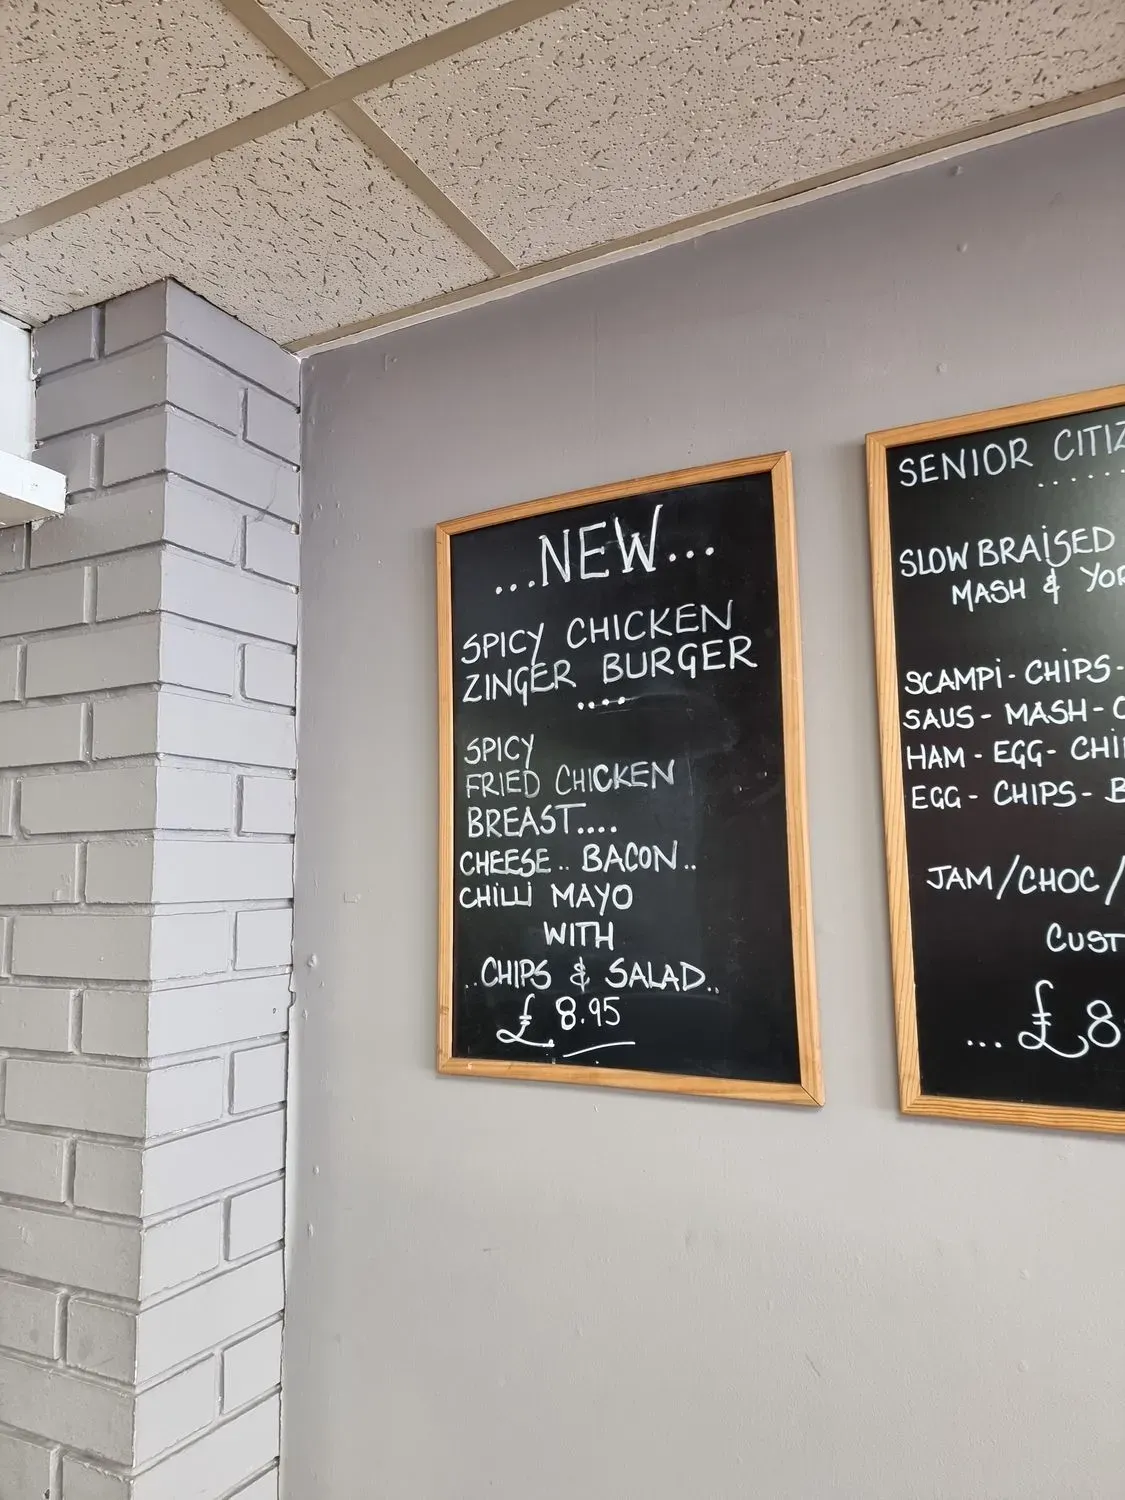 ...NEW...
SPICY CHICKEN
ZINGER BURGER
....
SPICY
FRIED CHICKEN
BREAST....
CHEESE.. BACON..
CHILLI MAYO
WITH
..CHIPS & SALAD..
£ 8.95
SENIOR
.......
SLOW BRAISED
MASH &
SCAMPI - CHIPS -
SAUS - MASH -
HAM - EGG -
EGG - CHIPS -
JAM/CHOC/
... £8